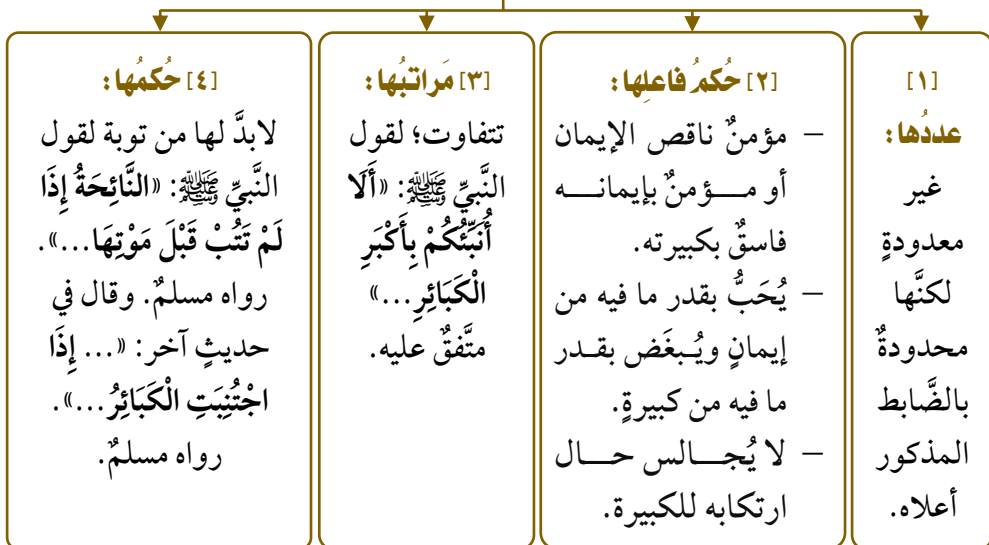 [١]
عددُها:
غير
معدودةٍ
لكنَّها
محدودةٌ
بالضَّابط
المذكور
أعلاه.
[٢] حُكمُ فاعلِها:
– مؤمنٌ ناقص الإيمان
أو مــؤمنٌ بإيمانــه
فاسقٌ بكبيرته.
– يُحَبُّ بقدر ما فيه من
إيمانٍ ويُـبغَض بقـدر
ما فيه من كبيرةٍ.
– لا يُجــالس حــال
ارتكابه للكبيرة.
[٣] مَراتبُها:
تتفاوت؛ لقول
النَّبيِّ ﷺ: «أَلَا
أُنَبِّئُكُمْ بِأَكْبَرِ
الْكَبَائِرِ...»
متَّفقٌ عليه.
[٤] حُكمُها:
لابدَّ لها من توبة لقول
النَّبيِّ ﷺ: «النَّائِحَةُ إِذَا
لَمْ تَتُبْ قَبْلَ مَوْتِهَا...».
رواه مسلمٌ. وقال في
حديثٍ آخر: «... إِذَا
اجْتُنِبَتِ الْكَبَائِرُ...».
رواه مسلمٌ.